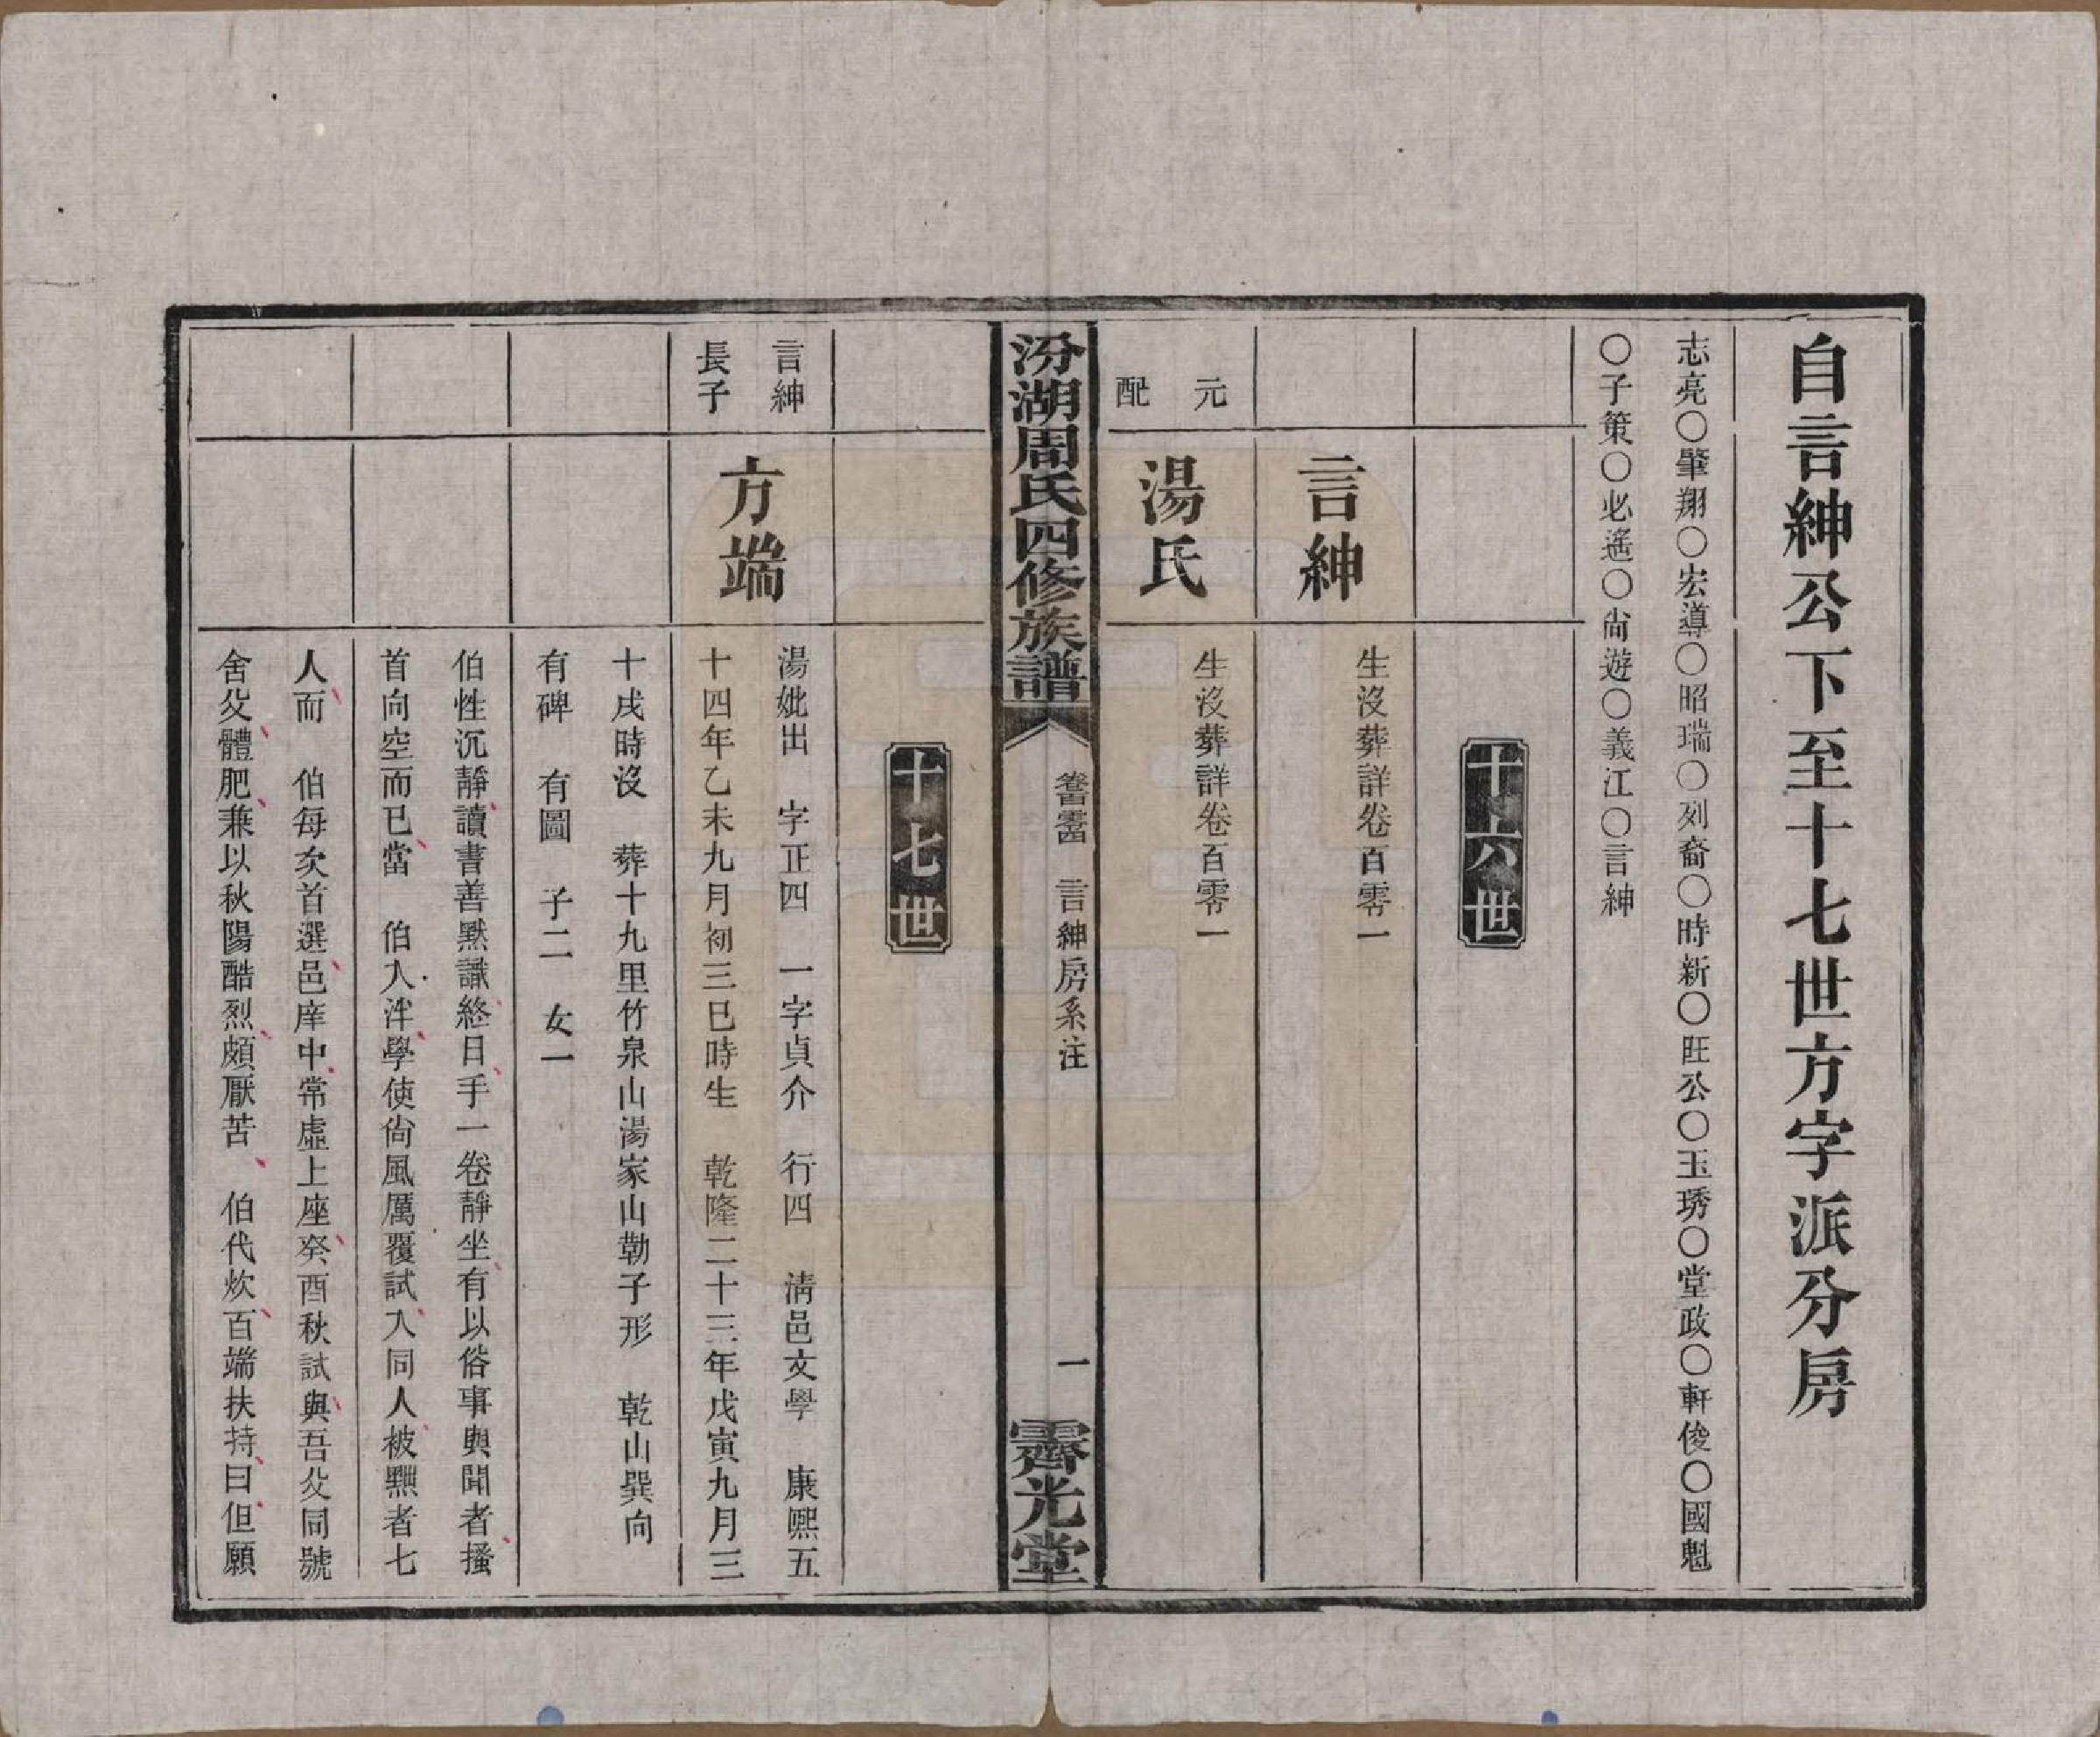 自言紳公下至十七世方字派分房
志亮〇肇翔〇宏導〇昭瑞〇列裔〇時新〇旺公〇玉琇〇堂政〇軒俊〇國魁
〇子策〇必遙〇尙遊〇義江〇言紳
十六世
言紳
生沒葬詳卷百零一
元配
湯氏
生沒葬詳卷百零一
汾湖周氏四修族譜
卷百零四
言紳房系注
一
霽光堂
十七世
言紳
長子
方端
湯妣出 字正四 一字貞介 行四 淸邑文學 康熙五
十四年乙未九月初三巳時生 乾隆二十三年戊寅九月三
十戌時沒 葬十九里竹泉山湯家山勒子形 乾山巽向
有碑 有圖 子二 女一
伯性沉靜讀書善默識終日手一卷靜坐有以俗事與聞者搔
首向空而已當 伯入泮學使尙風厲覆試入同人被黜者七
人而 伯每次首選邑庠中常虛上座癸酉秋試與吾父同號
舍父體肥兼以秋陽酷烈頗厭苦 伯代炊百端扶持曰但願